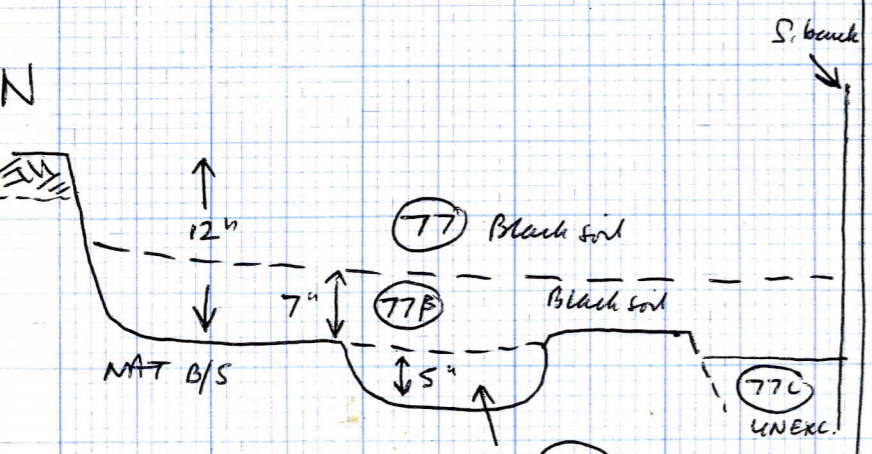 S. bank
N
12"
77 Black soil
7" 77B Black soil
NAT B/S
5"
77C
UNEXC.